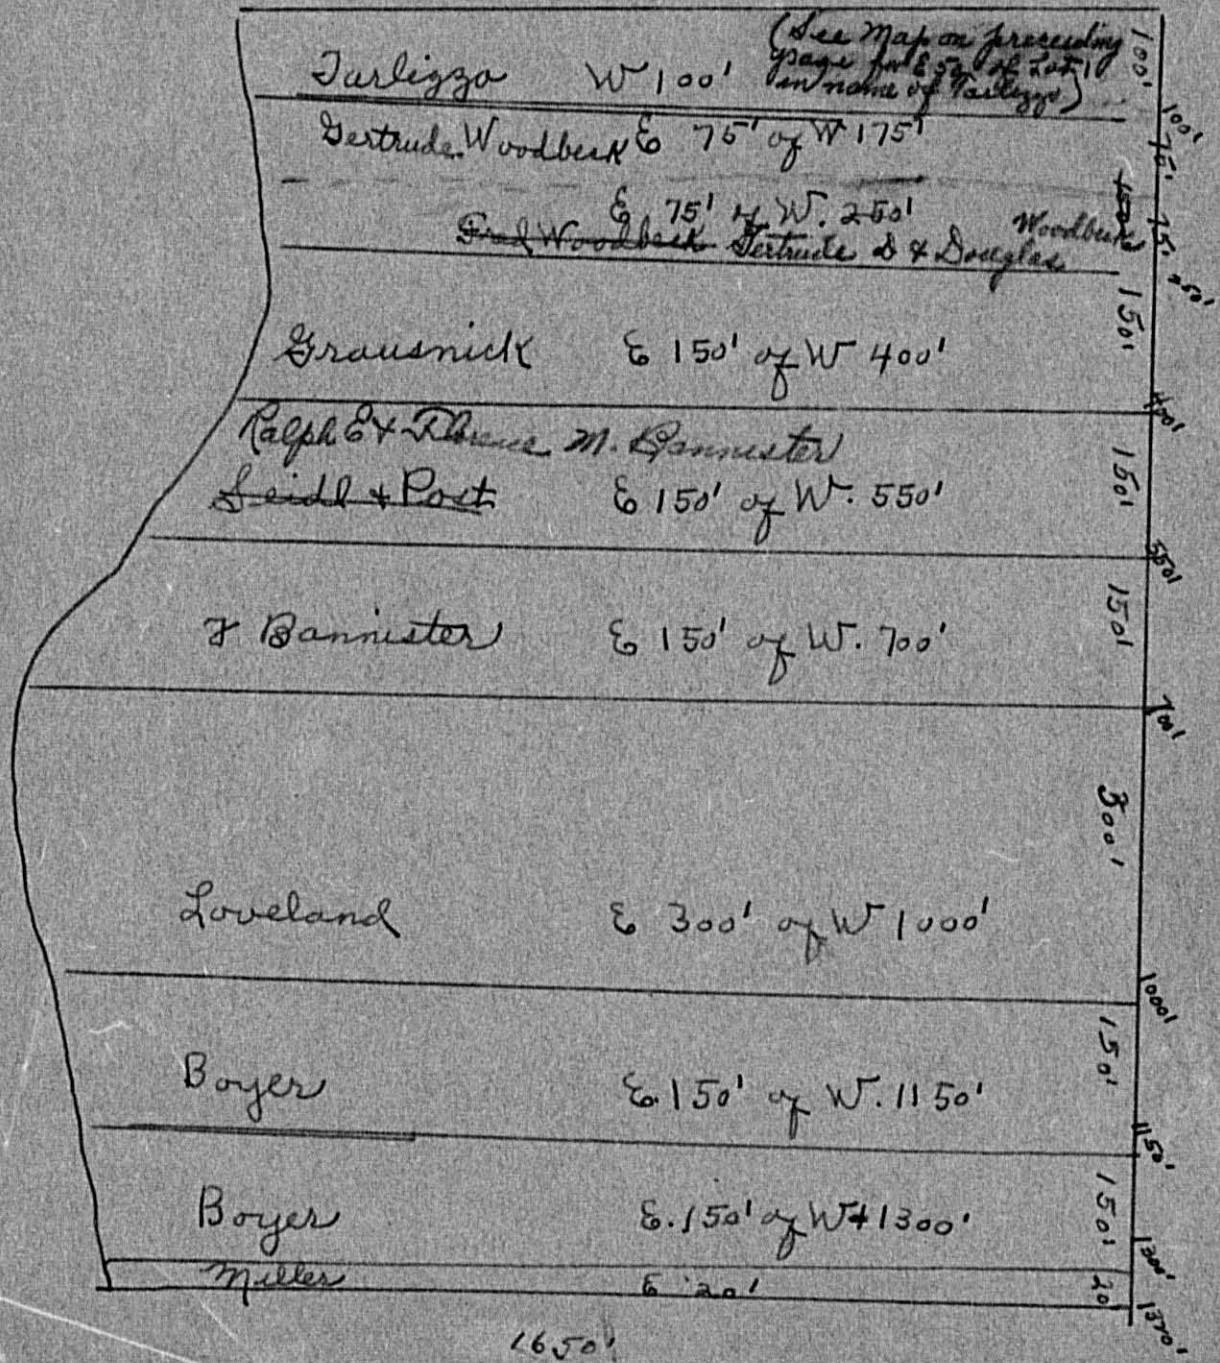 (See Map on preceding
page for E 50' of Lot 1
in name of Tarlizzo)
Tarlizzo W 100'
100'
100'
Gertrude Woodbeck E 75' of W 175'
75'
E 75' of W. 250'
Fred Woodbeck Gertrude D & Douglas Woodbeck
75'
250'
Grausnick E 150' of W 400'
150'
400'
Ralph E & Florence M. Bannister
Seidl & Post E 150' of W. 550'
150'
550'
F Bannister E 150' of W. 700'
150'
700'
Loveland E 300' of W 1000'
300'
1000'
Boyer E. 150' of W. 1150'
150'
1150'
Boyer E. 150' of W 1300'
150'
1300'
Miller E 20'
20'
1320'
1650'